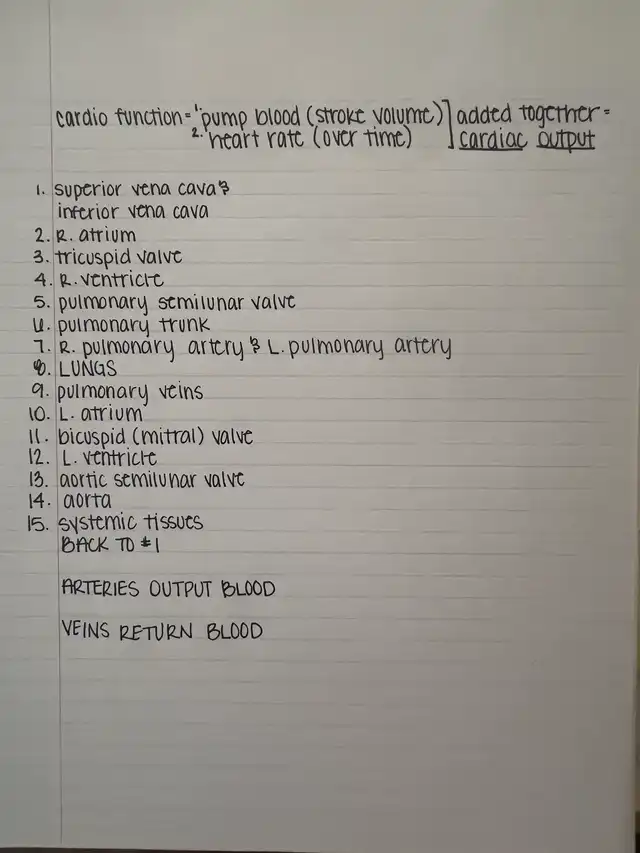 cardio function = 1. pump blood (stroke volume) ] added together =
2. heart rate (over time) ] cardiac output
1. superior vena cava &
inferior vena cava
2. R. atrium
3. tricuspid valve
4. R. ventricle
5. pulmonary semilunar valve
6. pulmonary trunk
7. R. pulmonary artery & L. pulmonary artery
8. LUNGS
9. pulmonary veins
10. L. atrium
11. bicuspid (mitral) valve
12. L. ventricle
13. aortic semilunar valve
14. aorta
15. systemic tissues
BACK TO #1
ARTERIES OUTPUT BLOOD
VEINS RETURN BLOOD